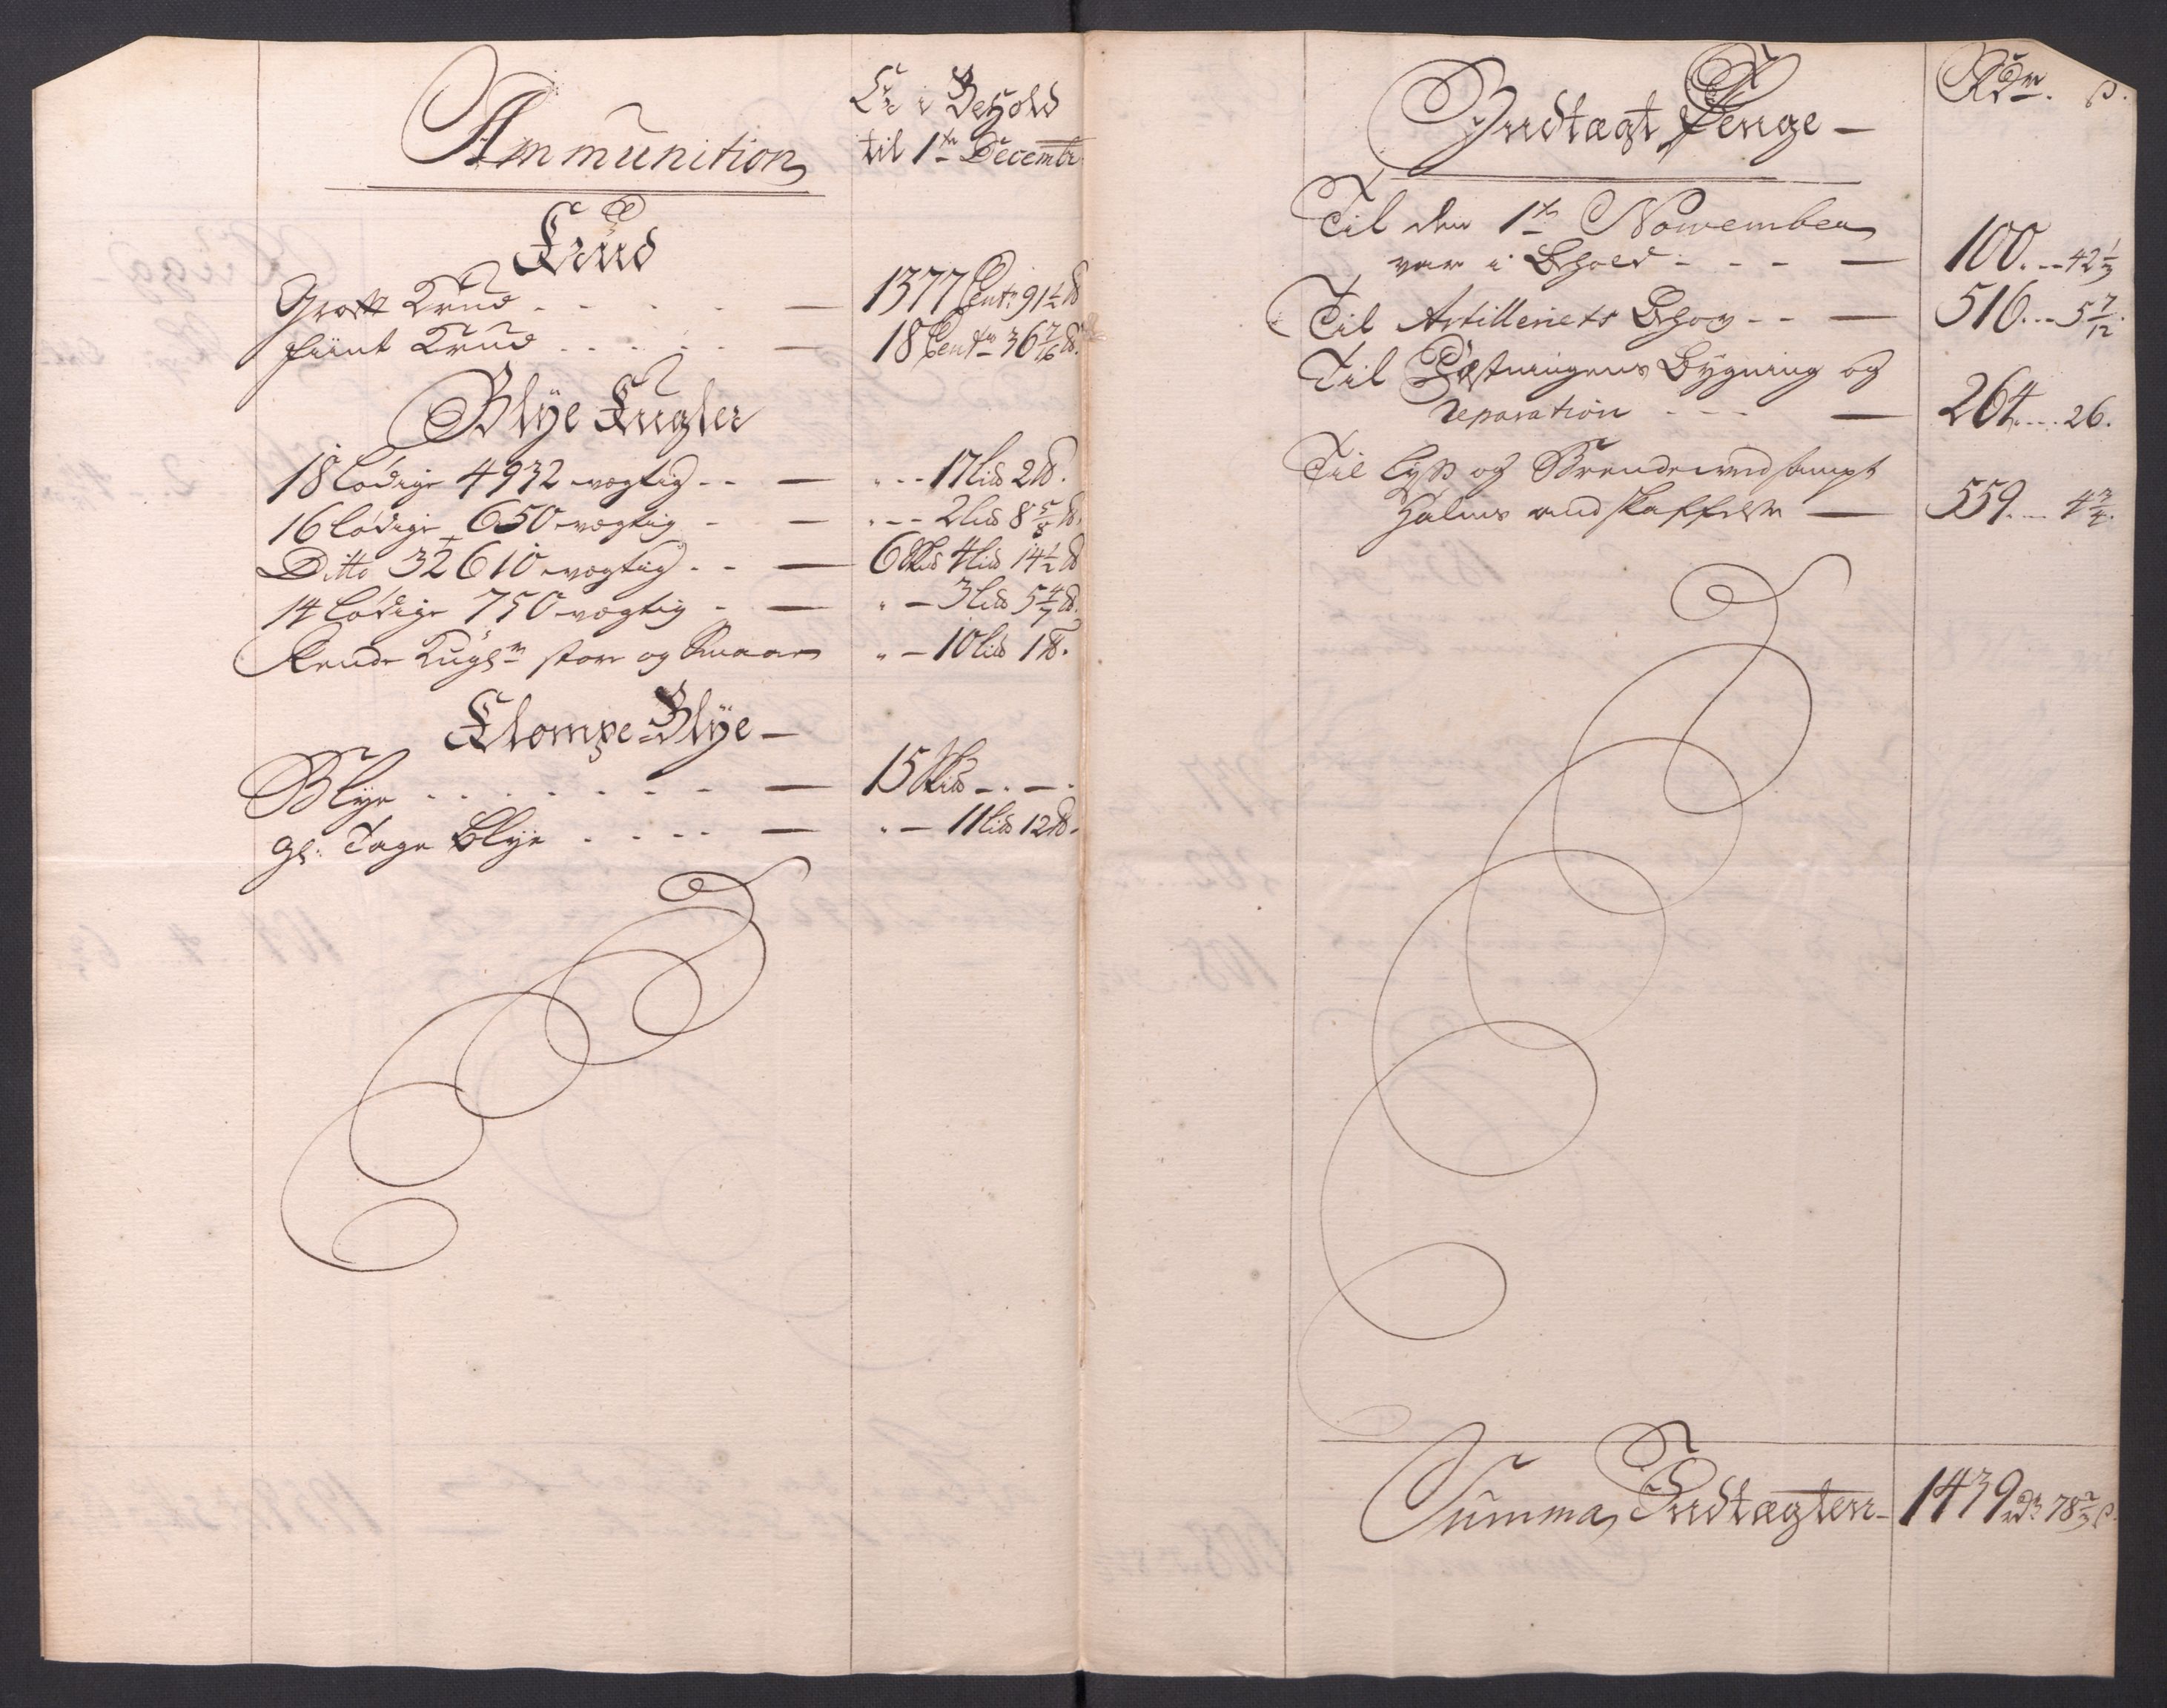 Ammunition
Er i Behold
til 1te Decembr
Krud
Groft Krud - - - - — 1377 Centr 91 1/2 ℔
fiint Krud - - - - — 18 Centr 36 7/16 ℔.
Blÿe Kugler
18 lødige 4932 vægtig - - — " - - 17 Lis 2 ℔.
16 lødige 650 vægtig - — " - - 2 Lis 8 5/8 ℔.
Ditto 32610 vægtig - - — 6 Skis 4 Lis 14 1/2 ℔
14 lødige 750 vægtig - — " - 3 Lis 5 4/7 ℔.
Rende Kugler store og Smaae " - 10 Lis 1 ℔.
Klompe-Blÿe -
Blye - - - - - - — 15 Skis - . - .
gl: Tage Blye - - - - — " - 11 Lis 12 ℔.
Indtægt Penge -
Rdr. ß.
Til den 1te Nowember
var i Behold - - - — 100 . - - 42 1/3
Til Artilleriets Behov - - — 516 . - - 5 7/12.
Til Fæstningens Bygning og
reparation - - - — 264 . - - 26.
Til Lyss og Brendeved sampt
Halms andskaffelse — 559 . - - 4 3/4.
Summa Indtægten - 1439 rdr 78 2/3 ß.